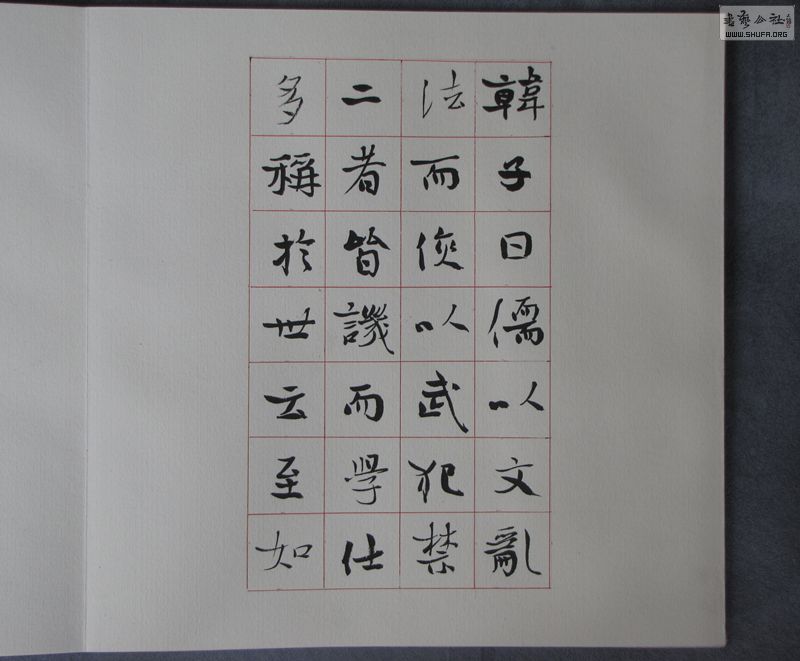 韓子曰儒以文亂
法而俠以武犯禁
二者皆譏而學仕
多稱於世云至如
書藝公社
WWW.SHUFA.ORG